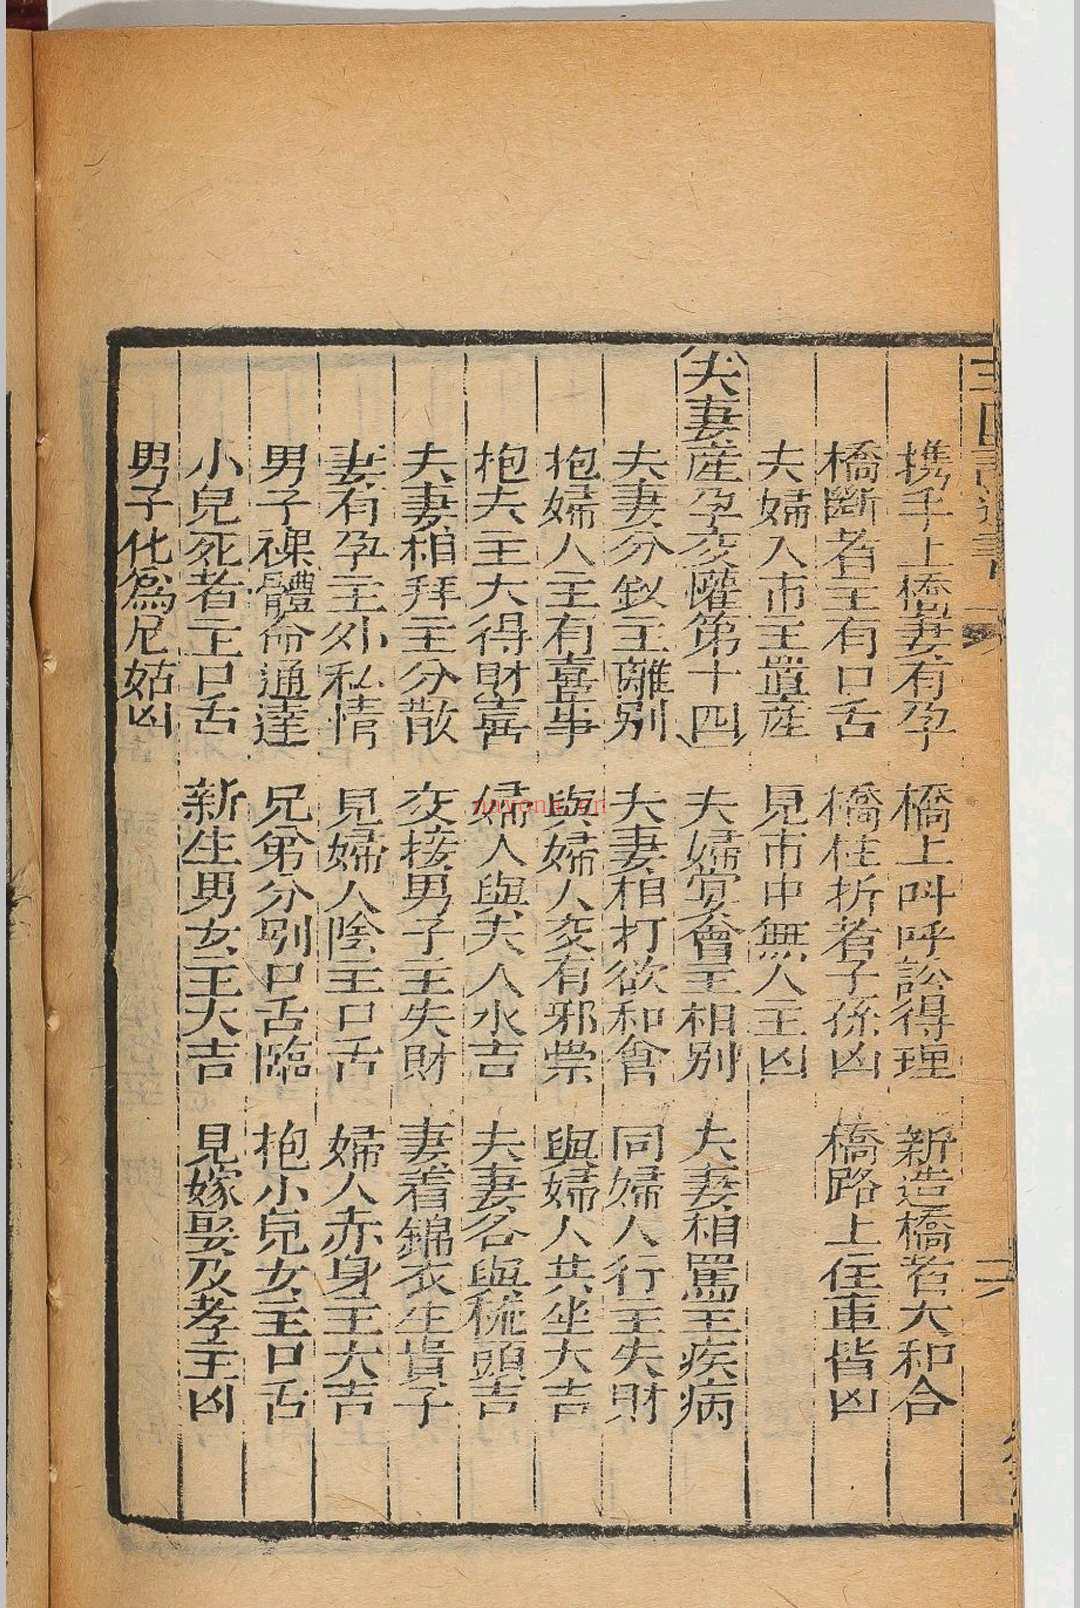 携手上橋妻有孕 橋上叫呼訟得理 新造橋者大和合
橋斷者主有口舌 橋柱折者子孫凶 橋路上住車皆凶
夫婦入市主置産 見市中無人主凶
夫妻産孕交歡第十四 夫婦宴會主相別 夫妻相罵主疾病
夫妻分釵主離別 夫妻相打欲和會 同婦人行主失財
抱婦人主有喜事 與婦人交有邪祟 與婦人共坐大吉
抱夫主大得財喜 婦人與夫入水吉 夫妻各與梳頭吉
夫妻相拜主分散 交接男子主失財 妻着錦衣生貴子
妻有孕主外私情 見婦人陰主口舌 婦人赤身主大吉
男子裸體命通達 兄弟分別口舌臨 抱小兒女主口舌
小兒死者主口舌 新生男女主大吉 見嫁娶及孝主凶
男子化爲尼姑凶